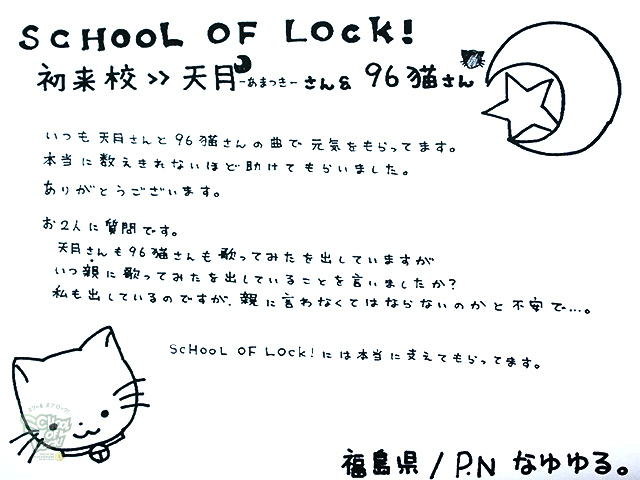 SCHOOL OF LOCK!
初来校>> 天月-あまつき-さん& 96猫さん
いつも天月さんと96猫さんの曲で元気をもらってます。
本当に数えきれないほど助けてもらいました。
ありがとうございます。
お2人に質問です。
天月さんも96猫さんも歌ってみたを出していますが
いつ親に歌ってみたを出していることを言いましたか?
私も出しているのですが、親に言わなくてはならないのかと不安で…。
SCHOOL OF LOCK!には本当に支えてもらってます。
福島県/P.N なゆゆる。